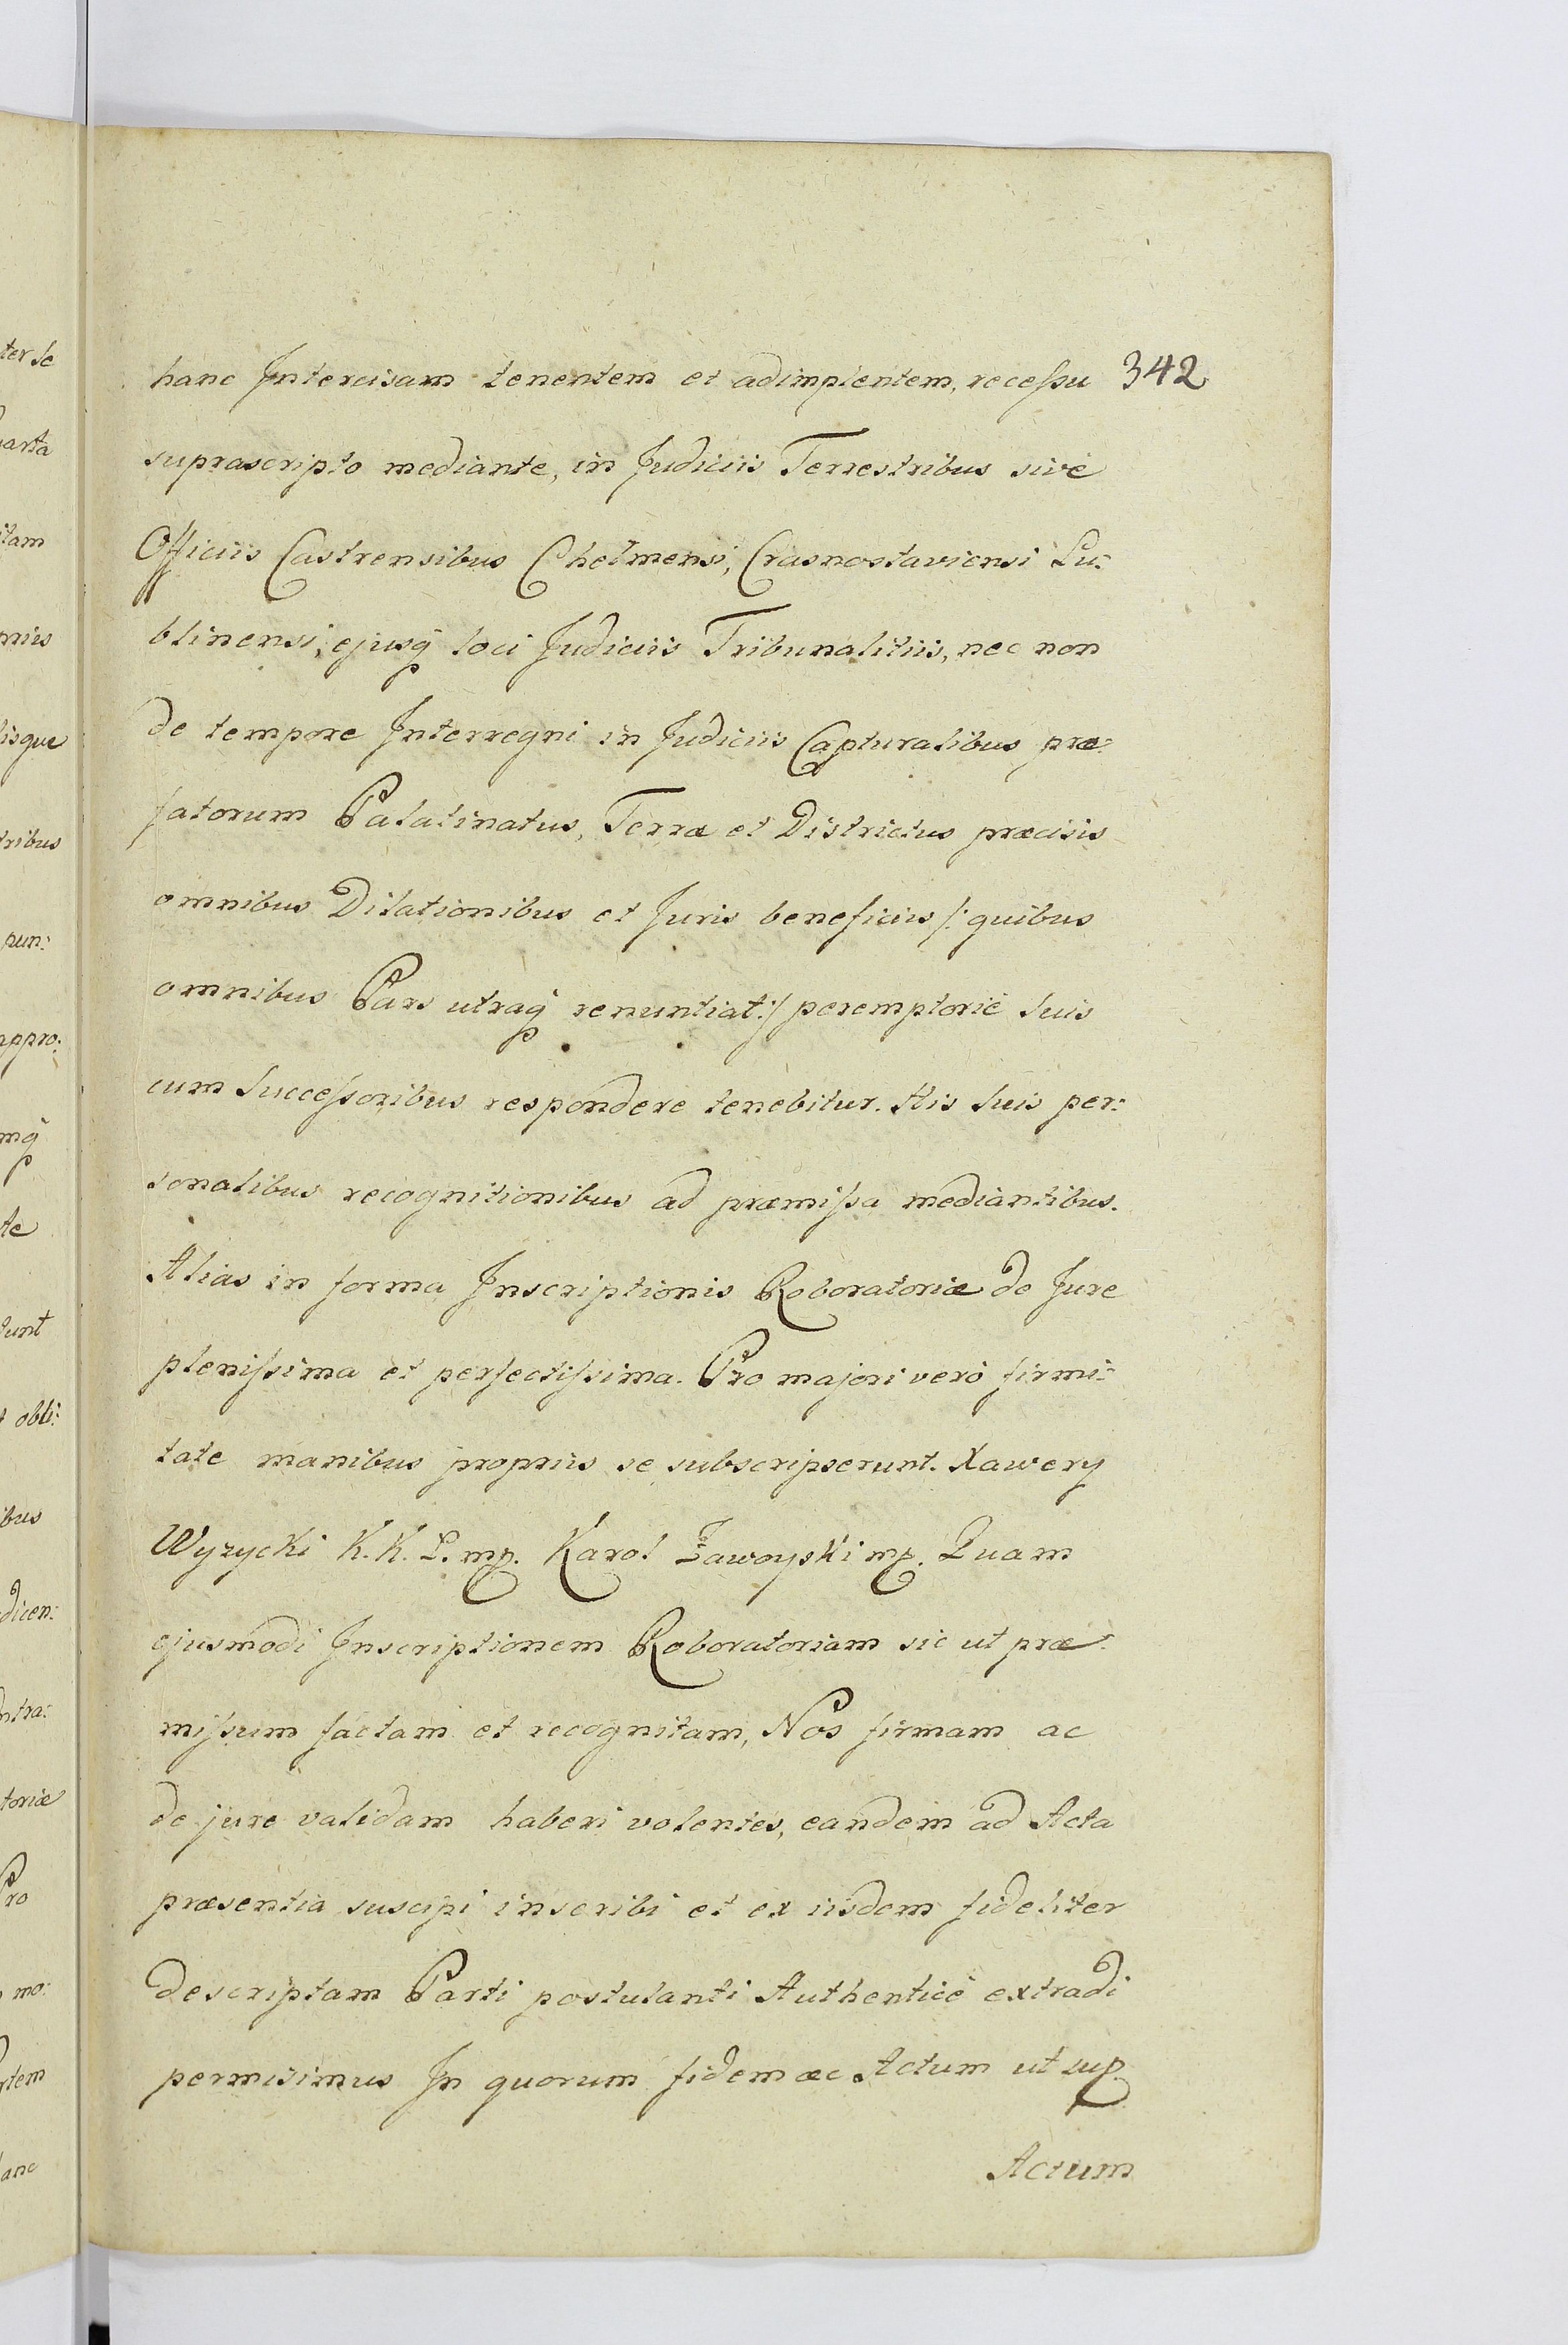 hanc Intercisam tenentem et adimplentem, recessu 342
suprascripto mediante, in Judiciis Terrestribus sivè
Officiis Castrensibus Chełmensi, Crasnostaviensi Lu:
blinensi, ejusq̃ loci Judiciis Tribunalitiis, nec non
de tempore Interregni in Judiciis Capturalibus præ:
fatorum Palatinatus, Terræ et Districtus præcisis
omnibus Dilationibus et Juris beneficiis /: quibus
omnibus Pars utraq̃ renuntiat :/ peremptoriè suis
cum Successoribus respondere tenebitur. His suis per:
sonalibus recognitionibus ad præmissa mediantibus.
Alias in forma Inscriptionis Roboratoriæ de Jure
plenissima et perfectissima. Pro majori verò firmi:
tate manibus propriis se subscripserunt. Xawery
Wyzycki K. K. L. mp. Karol Zawoyski mp. Quam
ejusmodi Inscriptionem Roboratoriam sic ut præ:
missum factam et recognitam, Nos firmam ac
de jure validam haberi volentes, eandem ad Acta
præsentia suscipi inscribi et ex iisdem fideliter
descriptam Parti postulanti Authenticè extradi
permisimus In quorum fidem ac Actum ut sup.
Actum